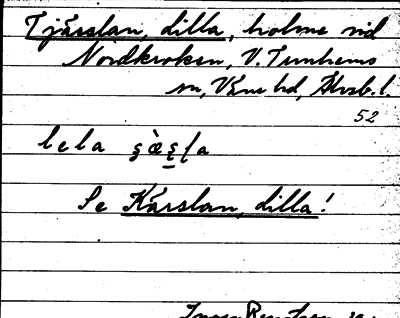 Tjärslan, dilla, holme vid
Nordkroken, V. Tunhems
sn, Väne hd, Älvsb. l.
52
lela
Se Kärslan, dilla!